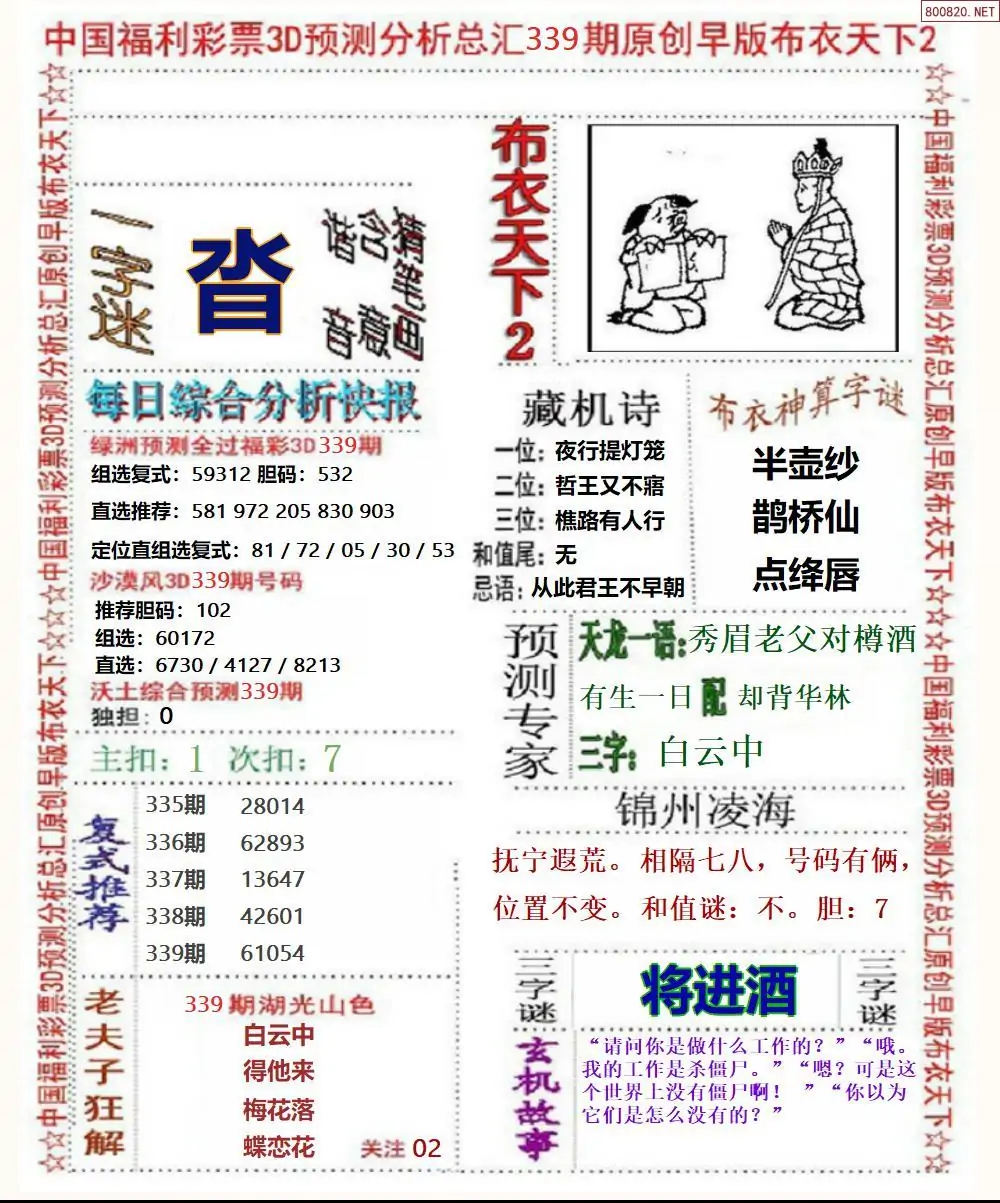 800820.NET
中国福利彩票3D预测分析总汇339期原创早版布衣天下2
☆☆中国福利彩票3D预测分析总汇原创早版布衣天下☆☆☆中国福利彩票3D预测分析总汇原创早版布衣天下☆☆
一字迷
沓
猜笔画
含意
拮音
布衣天下2
每日综合分析快报
绿洲预测全过福彩3D339期
组选复式：59312 胆码：532
直选推荐：581 972 205 830 903
定位直组选复式：81 / 72 / 05 / 30 / 53
沙漠风3D339期号码
推荐胆码：102
组选：60172
直选：6730 / 4127 / 8213
沃土综合预测339期
独担：0
主扣：1 次扣：7
复式推荐
335期 28014
336期 62893
337期 13647
338期 42601
339期 61054
老夫子狂解
339期湖光山色
白云中
得他来
梅花落
蝶恋花
关注 02
藏机诗
一位：夜行提灯笼
二位：哲王又不寤
三位：樵路有人行
和值尾：无
忌语：从此君王不早朝
布衣神算字谜
半壶纱
鹊桥仙
点绛唇
预测专家
天龙一语:秀眉老父对樽酒
有生一日 配 却背华林
三字：白云中
锦州凌海
抚宁遐荒。相隔七八，号码有俩，
位置不变。和值谜：不。胆：7
三字谜
将进酒
三字谜
玄机故事
“请问你是做什么工作的？”“哦。
我的工作是杀僵尸。”“嗯？可是这
个世界上没有僵尸啊！ ”“你以为
它们是怎么没有的？”
☆☆中国福利彩票3D预测分析总汇原创早版布衣天下☆☆☆中国福利彩票3D预测分析总汇原创早版布衣天下☆☆